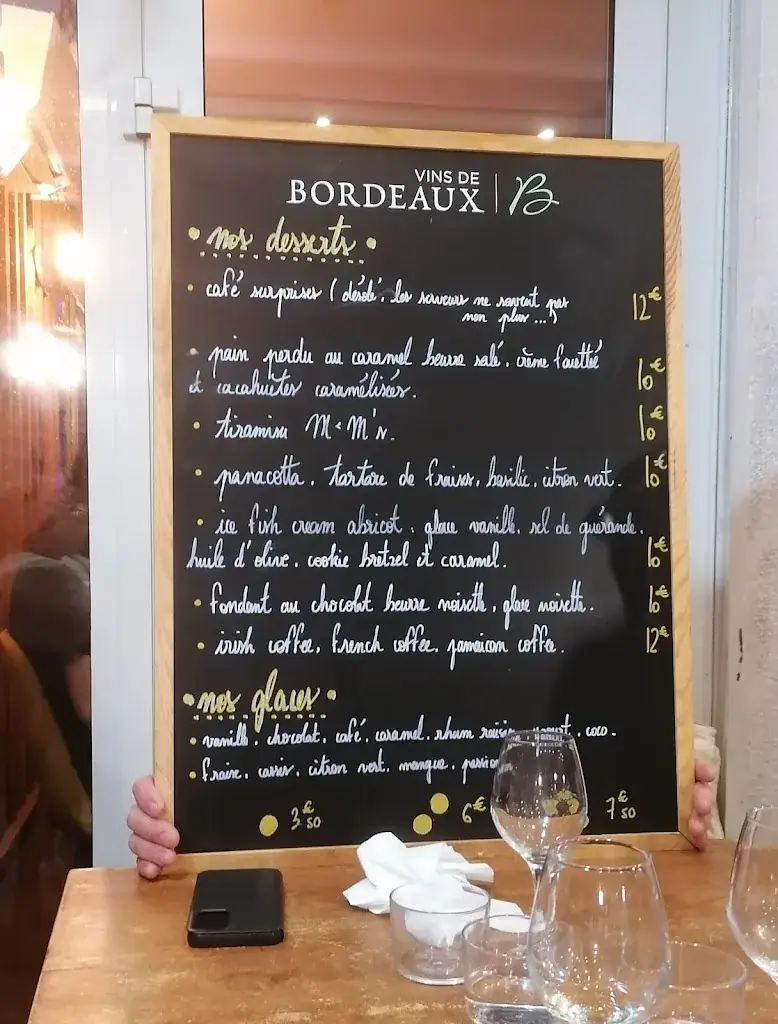 VINS DE
BORDEAUX B
nos desserts
café surprises (désolé, les serveurs ne savent pas
non plus...) 12€
pain perdu au caramel beurre salé, crème fouettée
et cacahuètes caramélisées. 10€
tiramisu M&M's. 10€
panacotta, tartare de fraises, basilic, citron vert. 10€
ice fish cream abricot, glace vanille, sel de guérande,
huile d'olive, cookie bretzel et caramel. 10€
fondant au chocolat beurre noisette, glace noisette. 10€
irish coffee, french coffee, jamaican coffee. 12€
nos glaces
vanille, chocolat, café, caramel, rhum raisin, coco.
fraise, cassis, citron vert, mangue,
3€50 6€ 7€50